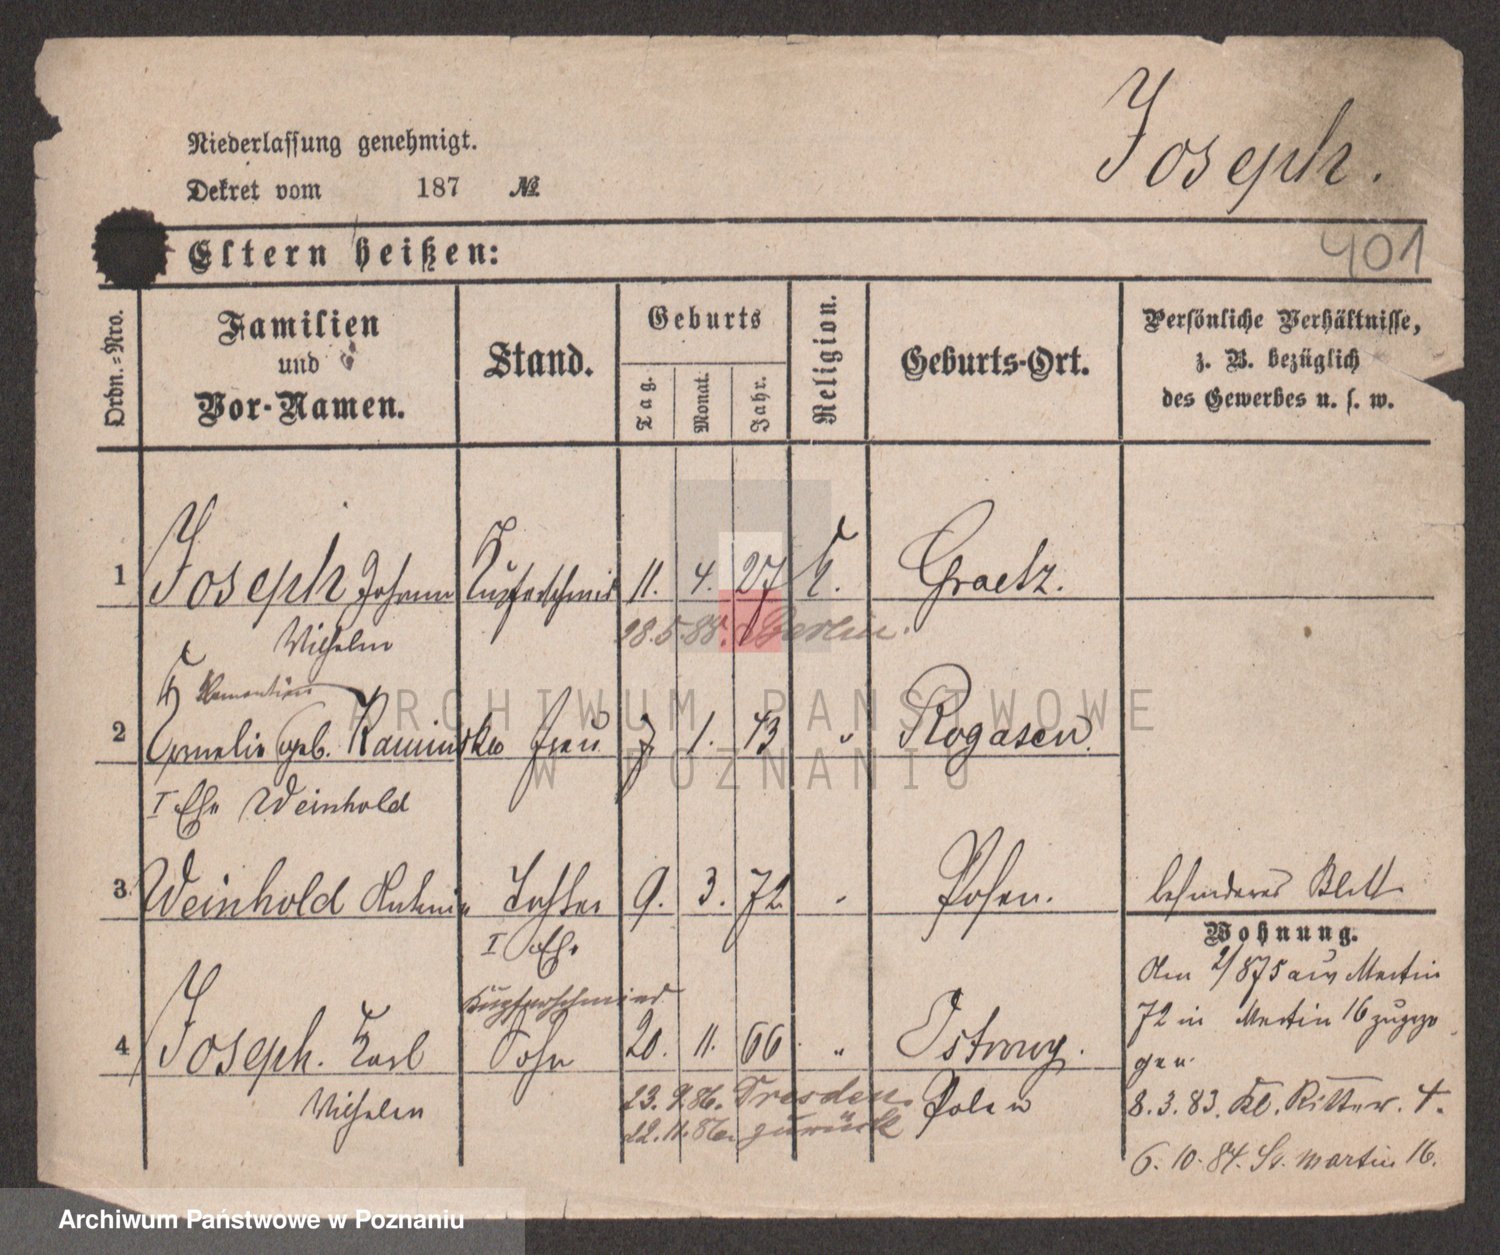 Joseph.
Niederlassung genehmigt.
Dekret vom 187 №
Eltern heißen:
401
Ordn.-Nro.
Familien und Vor-Namen.
Stand.
Geburts
Tag.
Monat.
Jahr.
Religion.
Geburts-Ort.
Persönliche Verhältnisse,
z. B. bezüglich
des Gewerbes u. s. w.
1 Joseph Johann Kupferschmid 11. 4. 27 K. Graetz.
Wilhelm 28.5.88. Berlin.
2 Cornelie geb. Kaminska Frau 7 1. 43 " Rogasen.
I Ehe Weinhold
3 Weinhold Antonie Tochter 9. 3. 72 " Posen. besonderes Blatt
I Ehe
Wohnung.
Den 2/875 aus Martin
72 in Martin 16 zugezo
gen.
Kupferschmied
4 Joseph. Karl Sohn 20. 11. 66. " Ostrowy.
Wilhelm 23. 9. 86. Dresden. Polen
22. 11. 86. zurück
8. 3. 83. Kl. Ritter. 4.
6. 10. 84. St. Martin 16.
ARCHIWUM PAŃSTWOWE
W POZNANIU
Archiwum Państwowe w Poznaniu